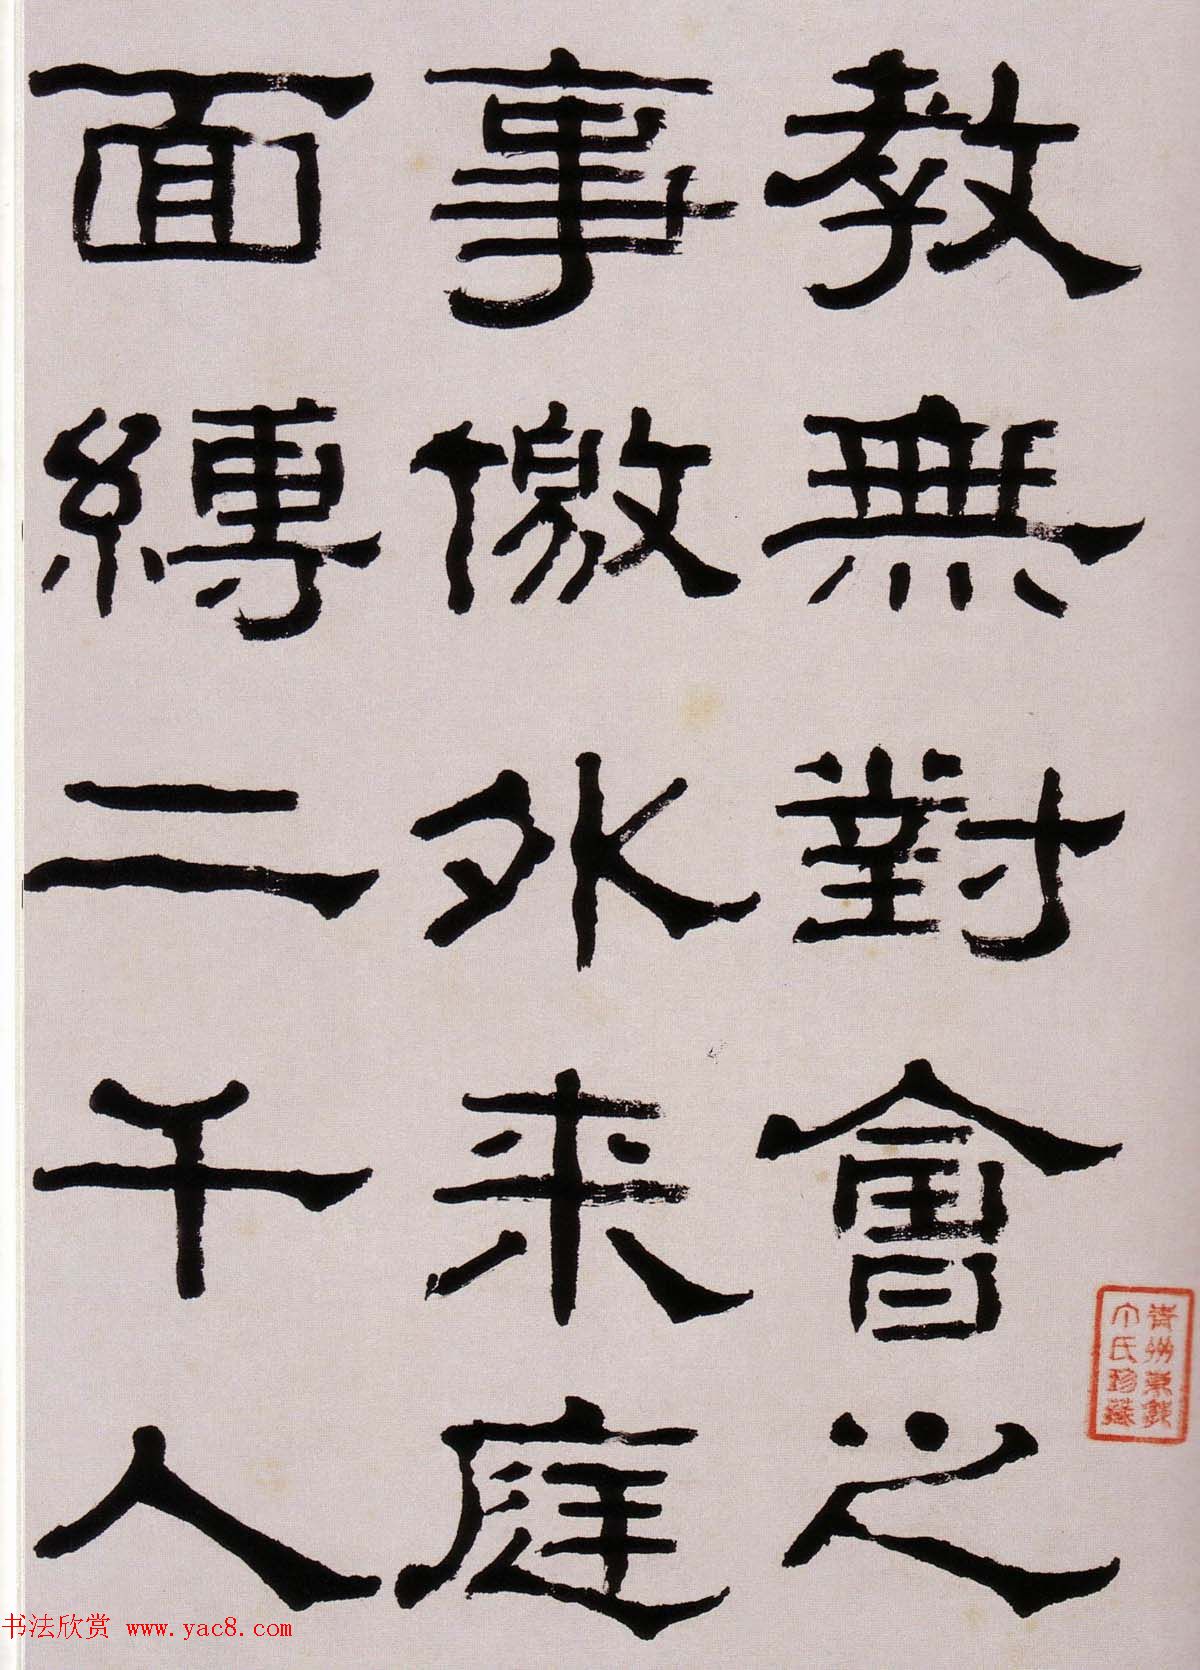 教無對會之
事儌外来庭
面縛二千人
青州
氏珍藏
书法欣赏 www.yac8.com